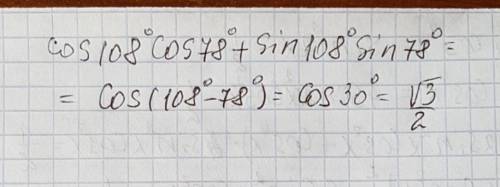 cos108°cos78°+sin108°sin78°=
= cos(108°-78°)= cos30°= √3/2